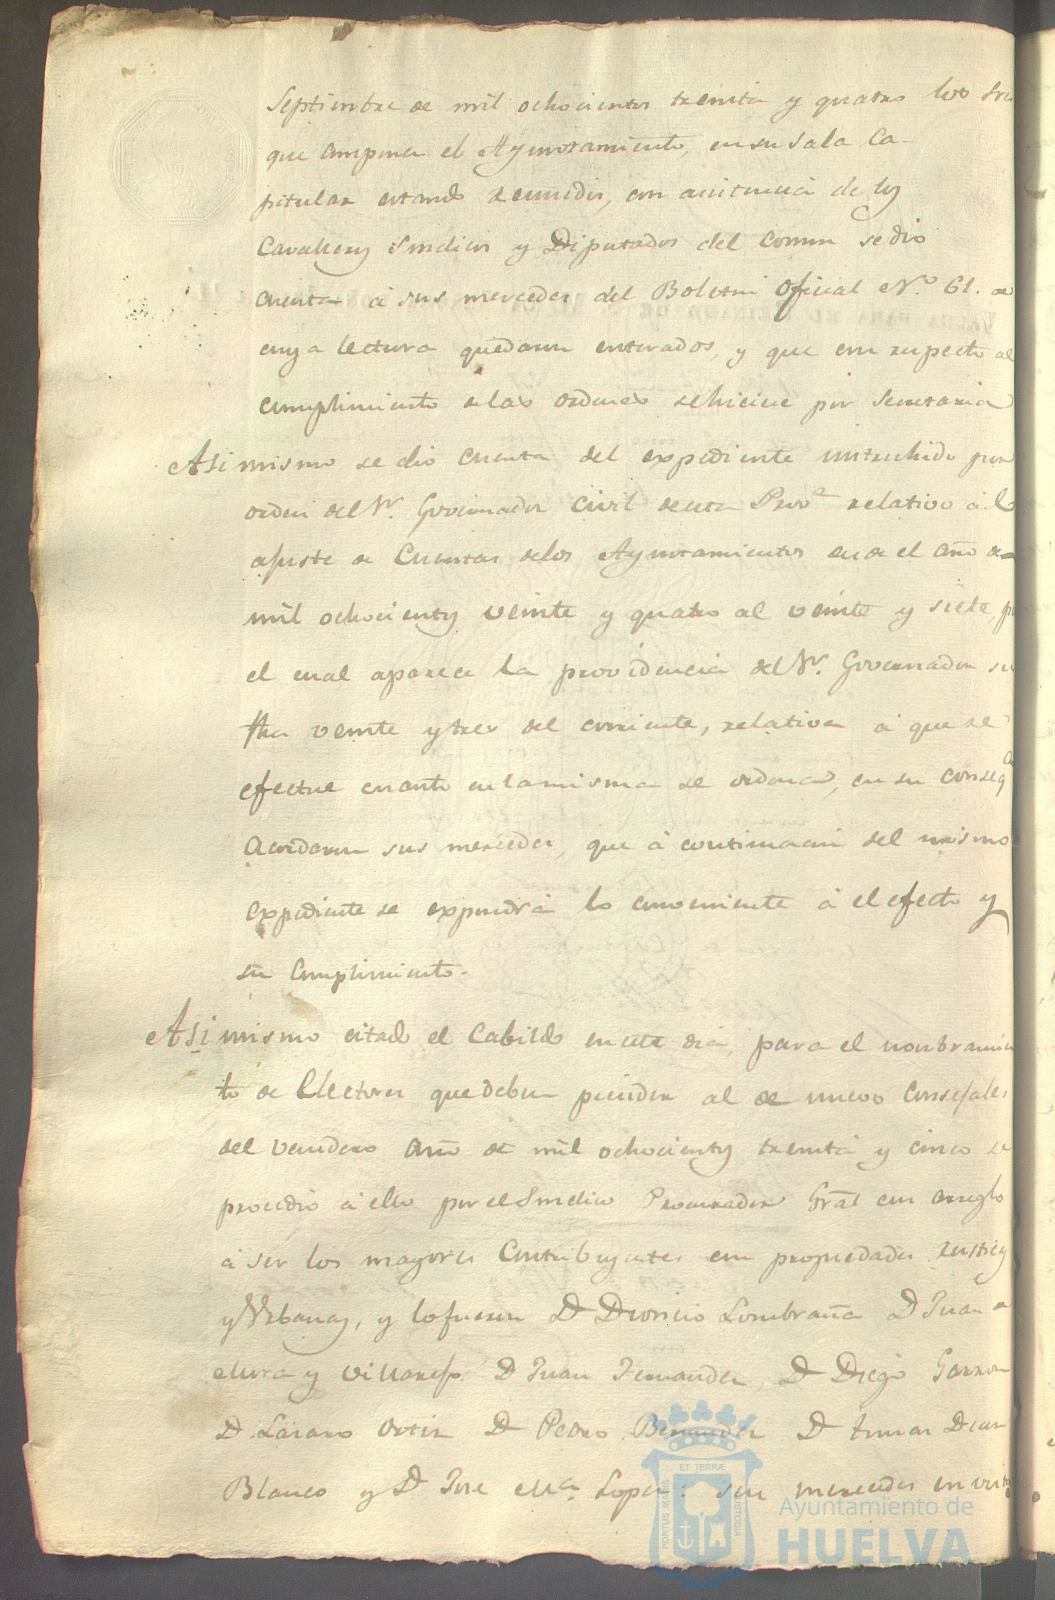 Septiembre de mil ochocientos treinta y quatro los Sres
que componen el Ayuntamiento, en su Sala Ca-
pitular estando reunidos, con asistencia de los
Cavalleros Sindicos y Diputados del Comun se dio
cuenta á sus mercedes del Boletin Oficial Nº 61. de
cuya lectura quedaron enterados, y que con respecto al
cumplimiento de las ordenes se hiciese por Secretaria
Asi mismo se dio cuenta del expediente instruhido por
orden del Sr. Governador Civil de esta Prova relativo á el
ajuste de Cuentas de los Ayuntamientos desde el año de
mil ochocientos veinte y quatro al veinte y siete, p
el cual aparece la providencia del Sr. Governador su
fha veinte y tres del corriente, relativa á que se
efectue cuanto en la misma se ordena, en su consega
acordaron sus mercedes, que á continuacion del mismo
expediente se expondrá lo combeniente á el efecto y
su cumplimiento.
Asi mismo citado el Cabildo en este dia, para el nonbramien
to de Electores que deben proceder al de nuevos Consejales
del venidero año de mil ochocientos treinta y cinco se
procedio á ello por el Sindico Procurador Gral con arreglo
á ser los mayores Contribuyentes en propiedades rusticas
y Urbanas, y lo fueron D Dionicio Lombraña D Juan de
Mora y Villarejo. D Juan Fernandez, D Diego Garzon
D. Lazaro Ortiz D Pedro Bermudez D Tomas Dias
Blanco y D Jose Ma Lopez: sus mercedes en virt
ET TERRÆ
PORTUS MARIS
CUSTODIA
Ayuntamiento de
HUELVA